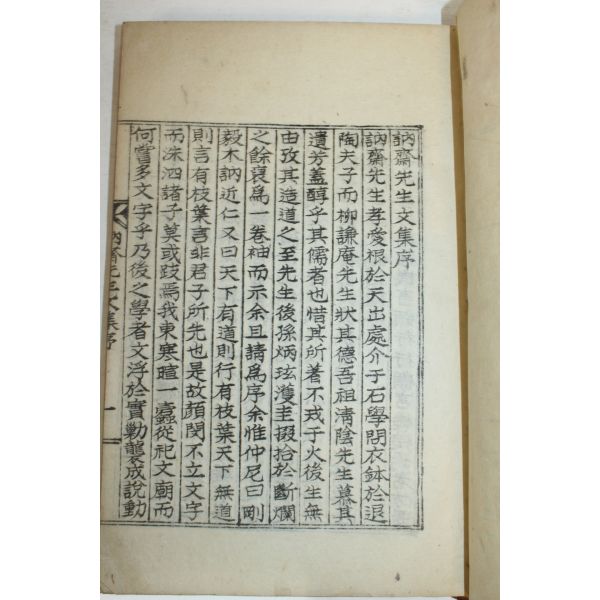 訥齋先生文集序
訥齋先生孝愛根於天出處介于石學問衣鉢於退
陶夫子而柳謙庵先生狀其德吾祖淸陰先生慕其
遺芳蓋醇乎其儒者也惜其所著不戎于火後生無
由攷其造道之至先生後孫炳玹濩圭掇拾於斷爛
之餘裒爲一卷袖而示余且請爲序余惟仲尼曰剛
毅木訥近仁又曰天下有道則行有枝葉天下無道
則言有枝葉言非君子所先也是故顔閔不立文字
而洙泗諸子莫或跂焉我東寒暄一蠹從祀文廟而
何嘗多文字乎乃後之學者文浮於實勦襲成說動
訥齋先生文集序
一